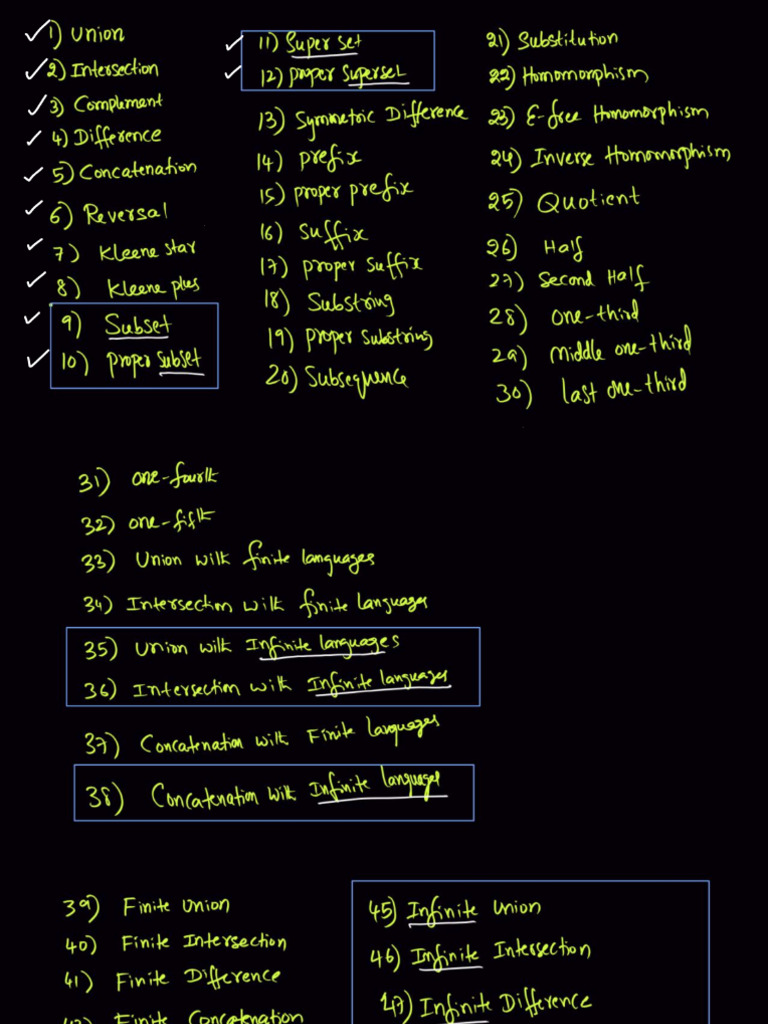 1) Union
2) Intersection
3) Complement
4) Difference
5) Concatenation
6) Reversal
7) Kleene star
8) Kleene plus
9) Subset
10) proper subset
11) Super set
12) proper superset
13) Symmetric Difference
14) prefix
15) proper prefix
16) suffix
17) proper suffix
18) Substring
19) proper substring
20) Subsequence
21) Substitution
22) Homomorphism
23) ε-free Homomorphism
24) Inverse Homomorphism
25) Quotient
26) Half
27) Second Half
28) one-third
29) middle one-third
30) last one-third
31) one-fourth
32) one-fifth
33) Union with finite languages
34) Intersection with finite languages
35) Union with Infinite languages
36) Intersection with Infinite languages
37) Concatenation with Finite languages
38) Concatenation with Infinite languages
39) Finite Union
40) Finite Intersection
41) Finite Difference
42) Finite Concatenation
45) Infinite Union
46) Infinite Intersection
47) Infinite Difference